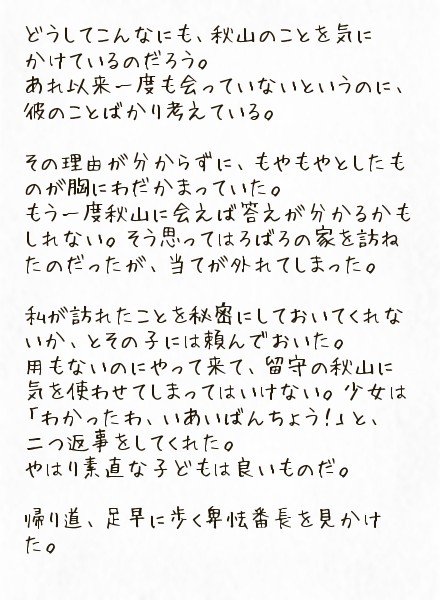 どうしてこんなにも、秋山のことを気に
かけているのだろう。
あれ以来一度も会っていないというのに、
彼のことばかり考えている。
その理由が分からずに、もやもやとしたも
のが胸にわだかまっていた。
もう一度秋山に会えば答えが分かるかも
しれない。そう思ってはろばろの家を訪ね
たのだったが、当てが外れてしまった。
私が訪れたことを秘密にしておいてくれな
いか、とその子には頼んでおいた。
用もないのにやって来て、留守の秋山に
気を使わせてしまってはいけない。少女は
「わかったわ、いあいばんちょう!」と、
二つ返事をしてくれた。
やはり素直な子どもは良いものだ。
帰り道、足早に歩く卑怯番長を見かけ
た。